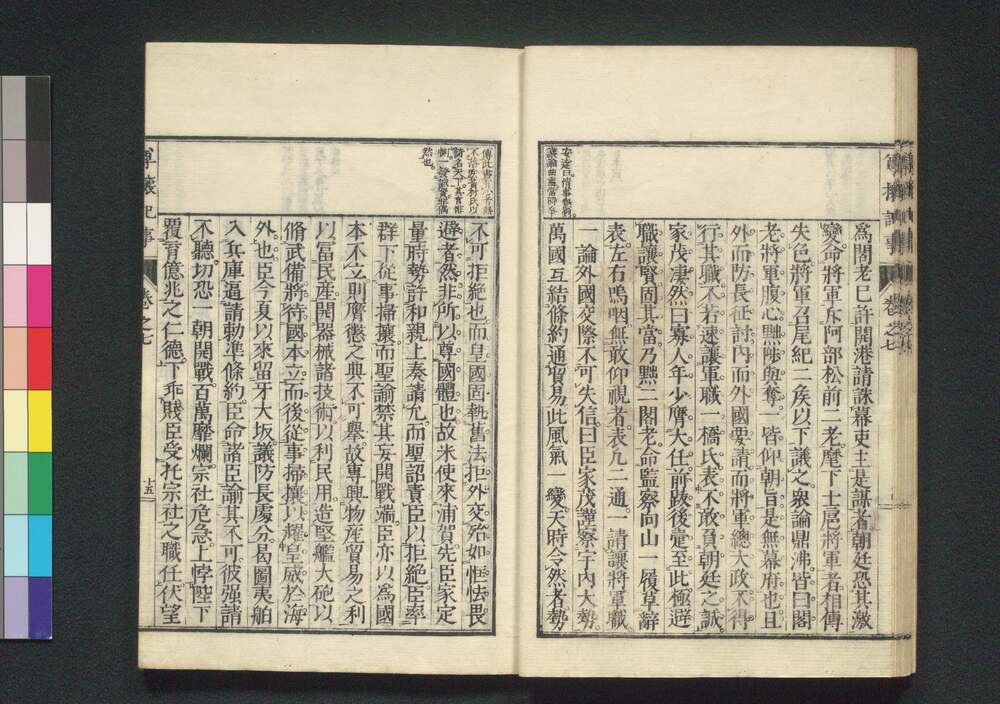 爲閣老已許開港請誅幕吏主是謀者朝廷恐其激
變命將軍斥阿部松前二老麾下士扈將軍者相傳
失色將軍召尾紀二矦以下議之衆論鼎沸皆曰閣
老將軍腹心黜陟與奪一皆仰朝旨是無幕府也且
外而防長征討内而外國要請而將軍總大政不得
行其職不若速讓軍職一橋氏表不敢負朝廷之誠
家茂凄然曰寡人年少膺大任前跋後疐至此極避
職讓賢固其當乃黜二閣老命監察向山一履草辭
表左右嗚咽無敢仰視者表凢二通一請讓將軍職
一論外國交際不可失信曰臣家茂謹察宇内大勢
萬國互結條約通貿易此風氣一變天時令然者勢
尊攘紀事
卷之七
不可拒絶也而皇國固執舊法拒外交殆如恇怯畏
避者然非所以尊國體也故米使來浦賀先臣家定
量時勢許和親上奏請允而聖詔責臣以拒絶臣率
群下從事掃攘而聖諭禁其妄開戰端臣亦以爲國
本不立則膺懲之典不可擧故專興物産貿易之利
以富民産開器械諸技術以利民用造堅艦大砲以
脩武備將待國本立而後從事掃攘以耀皇威於海
外也臣今夏以來留牙大坂議防長處分曷圖夷舶
入兵庫逼請勅準條約臣命諸臣諭其不可彼强請
不聽切恐一朝開戰百萬靡爛宗社危急上悖陛下
覆育億兆之仁德下乖賤臣受托宗社之職任伏望
卷之七
十五